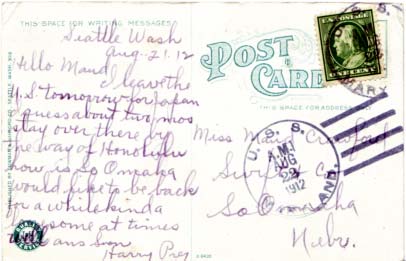 THIS SPACE FOR WRITING MESSAGES
Seattle Wash
Aug-21.12
Hello Maud
I leave the
U.S. tomorrow for Japan
I guess about two mos
stay over there by
the way of Honolulu
how is So Omaha
would like to be back
for a while kinda
lonesome at times
ans soon
Harry
POST CARD
THIS SPACE FOR ADDRESS ONLY
Miss Crawford
Swift Co
So Omaha
Nebr.
U.S. POSTAGE
1 CENT 1
U. S. S.
A.M.
AUG
22
1912
LAND.